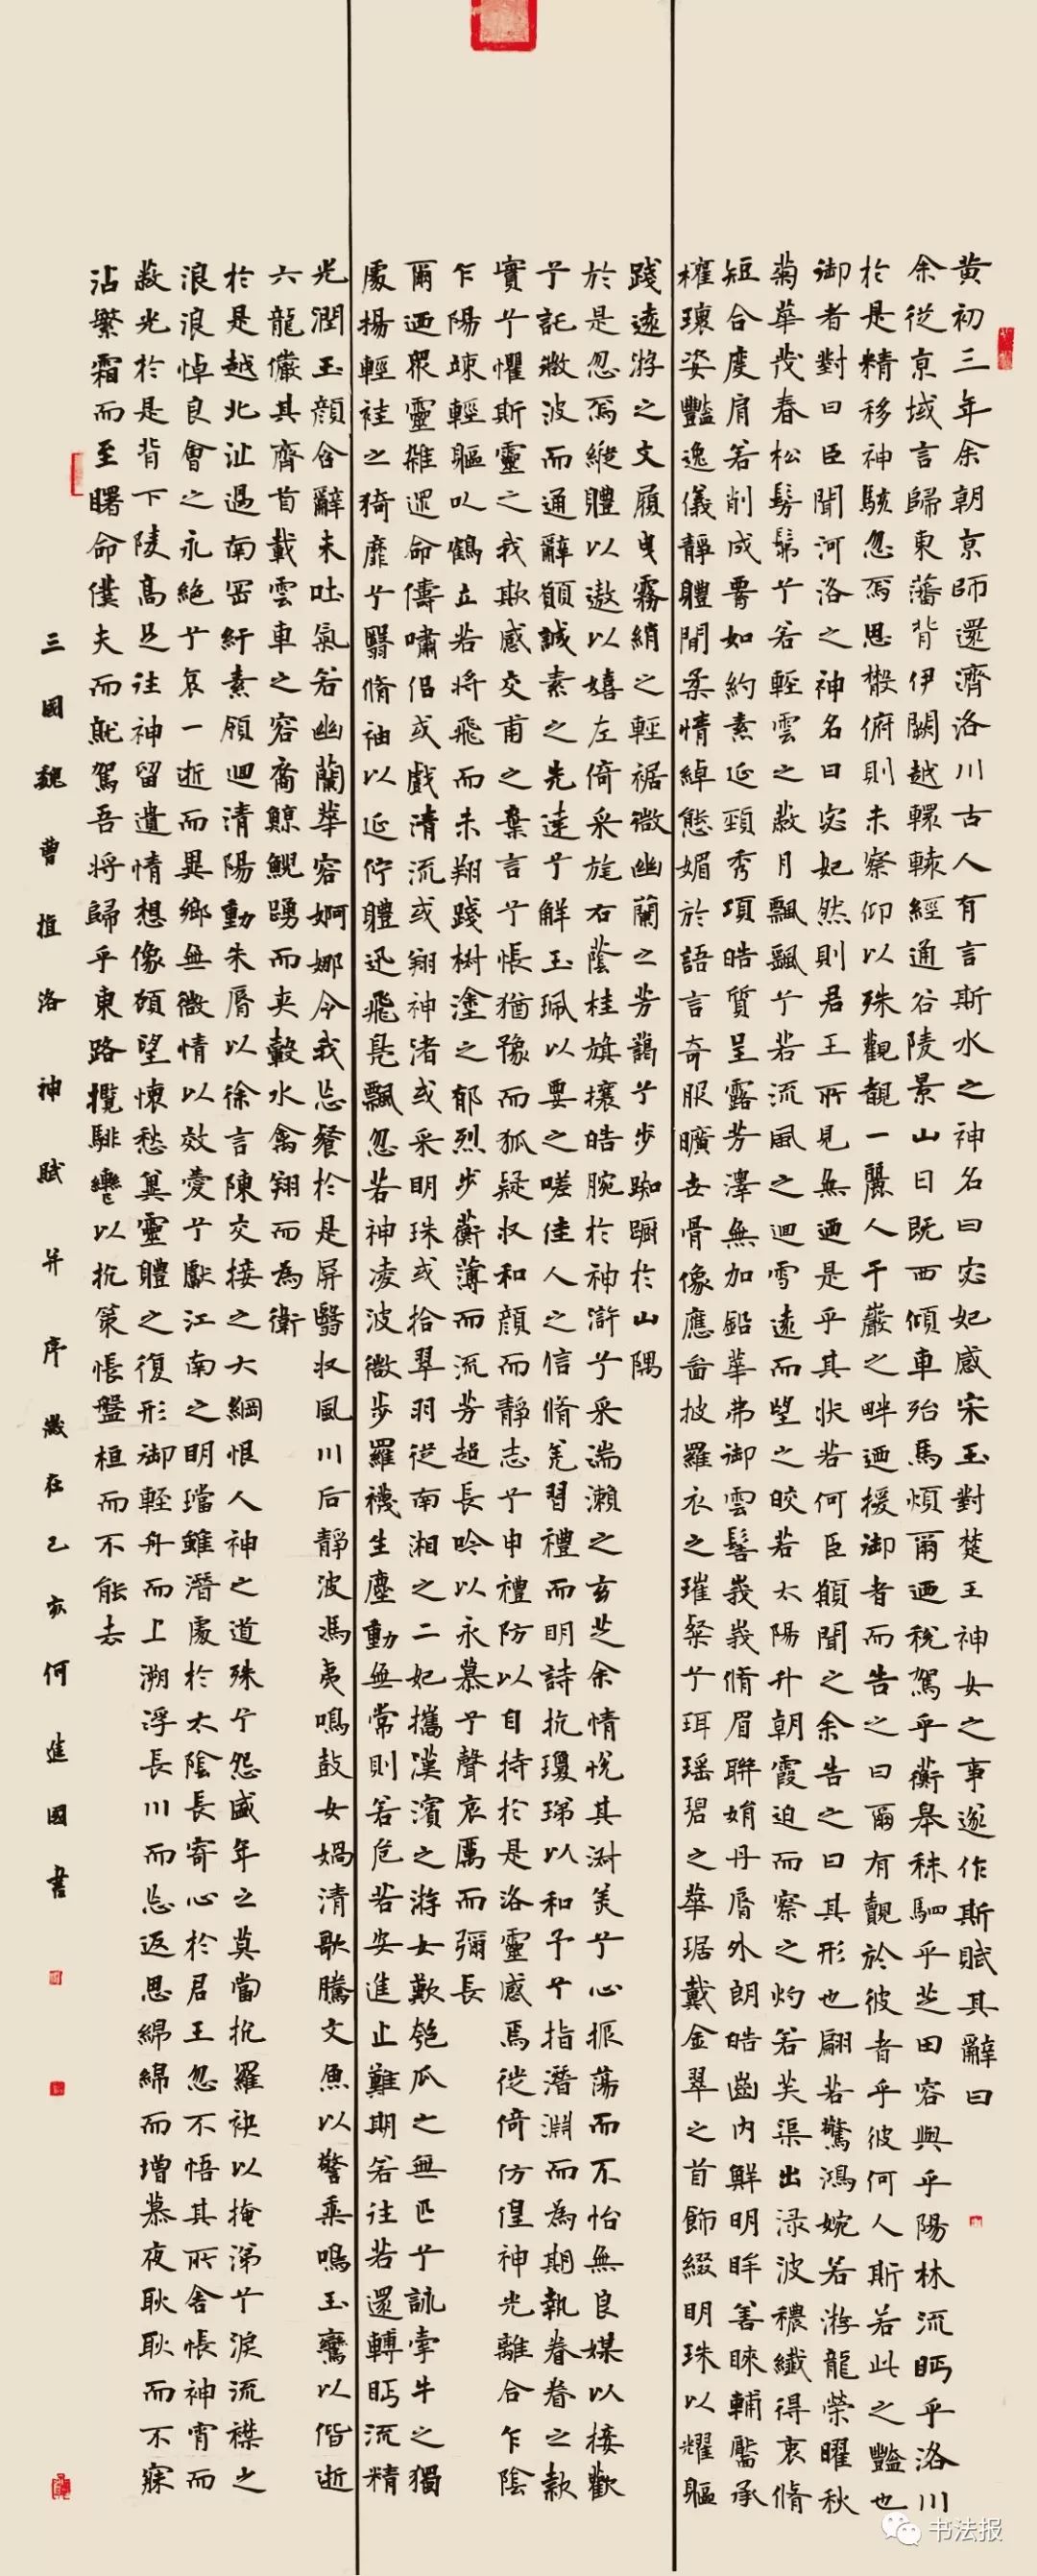 黄初三年余朝京師還濟洛川古人有言斯水之神名曰宓妃感宋玉對楚王神女之事遂作斯賦其辭曰
余從京域言歸東藩背伊闕越轘轅經通谷陵景山日既西傾車殆馬煩爾迺稅駕乎蘅皋秣駟乎芝田容與乎陽林流眄乎洛川
於是精移神駭忽焉思散俯則未察仰以殊觀覩一麗人于巖之畔迺援御者而告之曰爾有覿於彼者乎彼何人斯若此之豔也
御者對曰臣聞河洛之神名曰宓妃然則君王所見無迺是乎其狀若何臣願聞之余告之曰其形也翩若驚鴻婉若游龍榮曜秋
菊華茂春松髣髴兮若輕雲之蔽月飄飖兮若流風之迴雪遠而望之皎若太陽升朝霞迫而察之灼若芙渠出淥波穠纖得衷脩
短合度肩若削成要如約素延頸秀項皓質呈露芳澤無加鉛華弗御雲髻峩峩脩眉聯娟丹脣外朗皓齒內鮮明眸善睞輔靨承
權瓌姿豔逸儀靜體閒柔情綽態媚於語言奇服曠世骨像應圖披羅衣之璀粲兮珥瑤碧之華琚戴金翠之首飾綴明珠以耀軀
踐遠游之文履曳霧綃之輕裾微幽蘭之芳藹兮步踟躕於山隅
於是忽焉縱體以遨以嬉左倚采旄右蔭桂旗攘皓腕於神滸兮采湍瀨之玄芝余情悅其淑美兮心振蕩而不怡無良媒以接歡
兮託微波而通辭願誠素之先達兮解玉珮以要之嗟佳人之信脩羌習禮而明詩抗瓊珶以和予兮指潛淵而為期執眷眷之款
實兮懼斯靈之我欺感交甫之棄言兮悵猶豫而狐疑收和顏而靜志兮申禮防以自持於是洛靈感焉徙倚仿偟神光離合乍陰
乍陽竦輕軀以鶴立若将飛而未翔踐樹塗之郁烈步蘅薄而流芳超長吟以永慕兮聲哀厲而彌長
爾迺眾靈雜遝命儔嘯侶或戲清流或翔神渚或采明珠或拾翠羽從南湘之二妃攜漢濱之游女歎匏瓜之無匹兮詠牽牛之獨
處揚輕袿之猗靡兮翳脩袖以延佇體迅飛鳧飄忽若神凌波微步羅襪生塵動無常則若危若安進止難期若往若還轉眄流精
光潤玉顏含辭未吐氣若幽蘭華容婀娜令我忘餐於是屏翳收風川后靜波馮夷鳴鼓女媧清歌騰文魚以警乘鳴玉鸞以偕逝
六龍儼其齊首載雲車之容裔鯨鯢踴而夾轂水禽翔而為衛
於是越北沚過南岡紆素領迴清陽動朱脣以徐言陳交接之大綱恨人神之道殊兮怨盛年之莫當抗羅袂以掩涕兮淚流襟之
浪浪悼良會之永絕兮哀一逝而異鄉無微情以效愛兮獻江南之明璫雖潛處於太陰長寄心於君王忽不悟其所舍悵神宵而
蔽光於是背下陵高足往神留遺情想像顧望懷愁冀靈體之復形御輕舟而上溯浮長川而忘返思綿綿而增慕夜耿耿而不寐
沾繁霜而至曙命僕夫而就駕吾将歸乎東路攬騑轡以抗策悵盤桓而不能去
三國魏曹植洛神賦并序歲在己亥何進國書
书法报